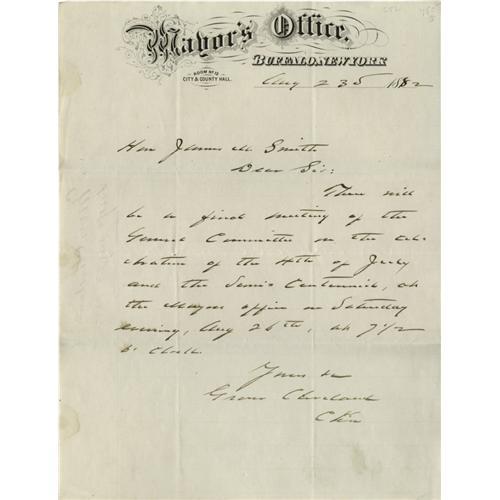 Mayor's Office,
BUFFALO, NEW YORK
ROOM No 13
CITY & COUNTY HALL.
Aug 23d 1882
Hon James M. Smith
Dear Sir:
There will
be a final meeting of the
General Committee on the cele-
bration of the 4th of July
and the Semi Centennial, at
the Mayors office on Saturday
evening, Aug 26th, at 7 1/2
o'clock.
Yours &c
Grover Cleveland
Chn